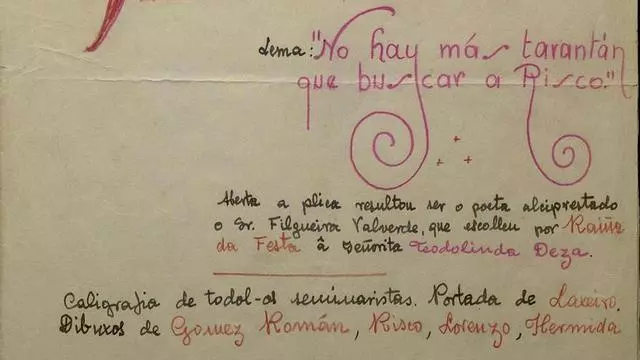 Lema: "No hay más tarantán
que buscar a Risco."
Aberta a plica resultou ser o poeta alciprestado
o Sr. Filgueira Valverde, que escolleu por Raíña
da Festa â Señorita Teodolinda Deza.
Caligrafia de todol-os seminaristas. Portada de Laxeiro.
Dibuxos de Gomez Román, Risco, Lorenzo, Hermida